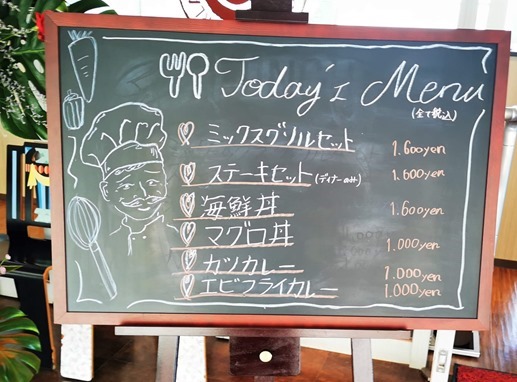 Today's Menu
(全て税込)
ミックスグリルセット 1.600yen
ステーキセット(ディナーのみ) 1.600yen
海鮮丼 1.600yen
マグロ丼 1.000yen
カツカレー 1.000yen
エビフライカレー 1.000yen